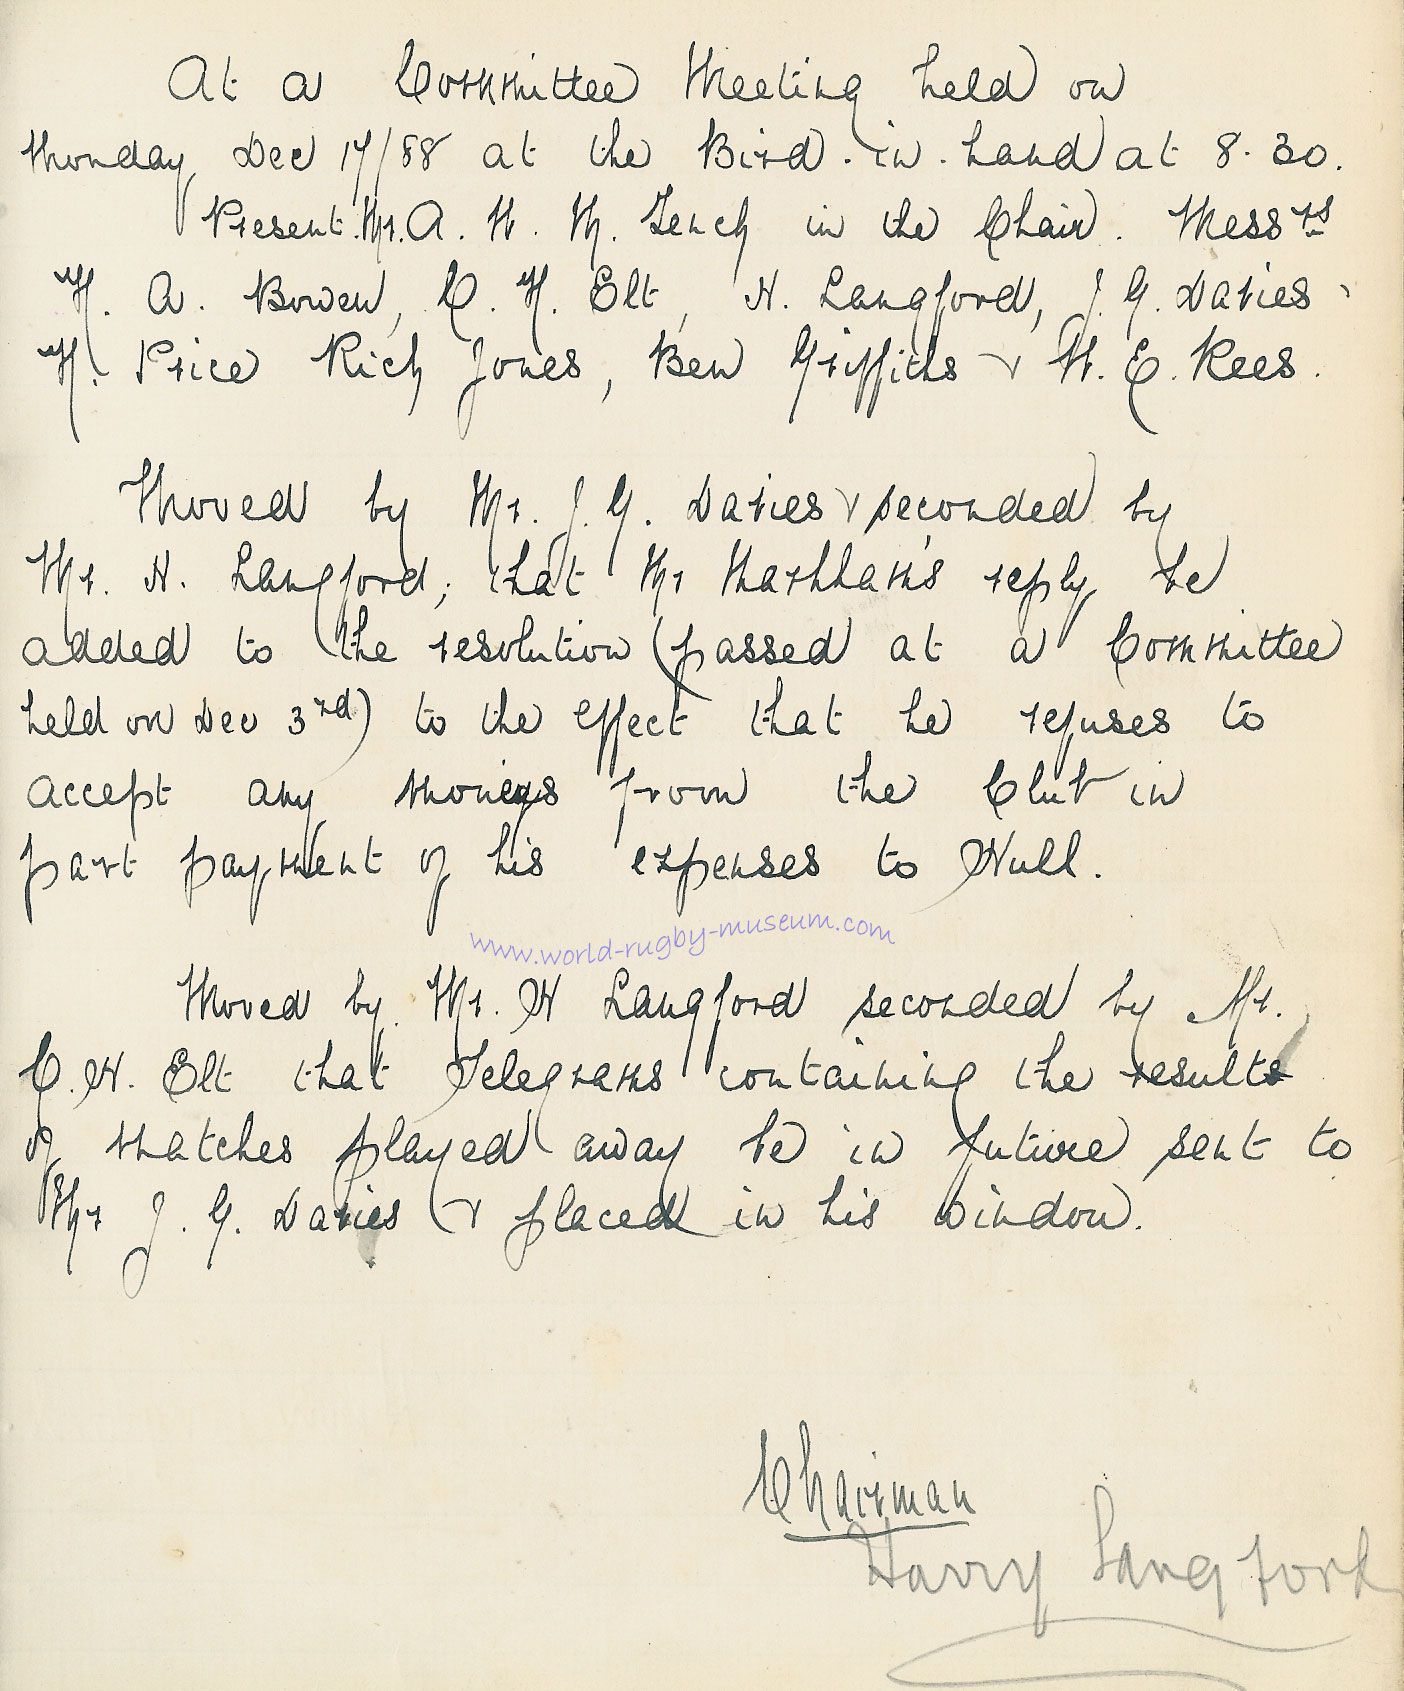 At a Committee Meeting held on
Monday Dec 17/88 at the Bird-in-hand at 8.30.
Present. Mr. A. W. M. Tench in the Chair. Messrs
H. A. Bowen, C. H. Elt, H. Langford, J. G. Davies,
H. Price Rich Jones, Ben Griffiths & W. E. Rees.
Moved by Mr. J. G. Davies & seconded by
Mr. H. Langford, that Mr Markham's reply be
added to the resolution (passed at a Committee
held on Dec 3rd) to the effect that he refuses to
accept any monies from the Club in
part payment of his expenses to Hull.
www.world-rugby-museum.com
Moved by Mr. H Langford seconded by Mr.
C. H. Elt that Telegrams containing the results
of matches played away be in future sent to
Mr J. G. Davies & placed in his window.
Chairman
Harry Langford